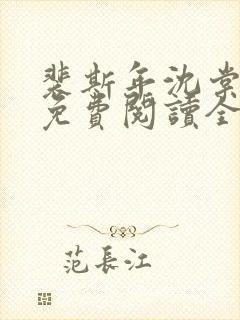 裴斯年沈棠
免費閱讀全
范長江